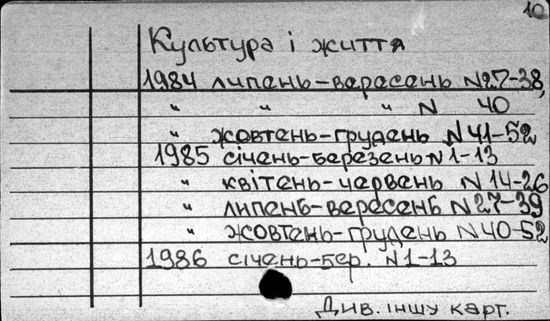 10
Культура і життя
1984 липень-вересень N27-38,
" " " N 40
" жовтень-грудень N41-52
1985 січень-березень N1-13
" квітень-червень N14-26
" липень-вересень N27-39
" жовтень-грудень N40-52
1986 січень-бер. N1-13
Див. іншу карт.